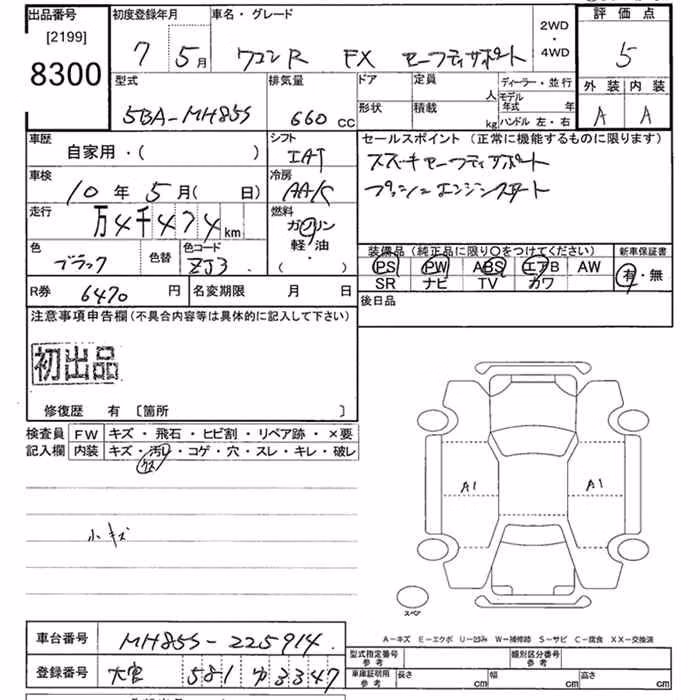 出品番号 初度登録年月 車名・グレード 2WD・4WD 評価点
[2199]
8300 7 5月 ワゴンR FX セーフティサポート 5
型式 排気量 ドア 定員 人 ディーラー・並行 外装 内装
5BA-MH85S 660cc 形状 積載 kg モデル年式 年 ハンドル 左・右 A A
車歴 シフト セールスポイント (正常に機能するものに限ります)
自家用・( ) IAT スズキセーフティサポート
車検 冷房 プッシュエンジンスタート
10年5月( 日) AAC
走行 燃料
万4千474km ガソリン
軽・油
・
( )
色 色替 色コード 装備品 (純正品に限り○をつけてください) 新車保証書
ブラック ZJ3 PS PW ABS エアB AW 有・無
SR ナビ TV カワ
R券 6470円 名変期限 月 日 後日品
注意事項申告欄 (不具合内容等は具体的に記入して下さい)
初出品
修復歴 有 [箇所 ]
検査員 FW キズ・飛石・ヒビ割・リペア跡・×要
記入欄 内装 キズ・汚レ・コゲ・穴・スレ・キレ・破レ
A1 A1
小キズ
スペア
A-キズ E-エクボ U-凹み W-補修跡 S-サビ C-腐食 XX-交換済
車台番号 MH85S-225914
型式指定番号 参考 類別区分番号 参考
登録番号 581 ゆ 3347
車庫証明用 参考 長さ cm 幅 cm 高さ cm